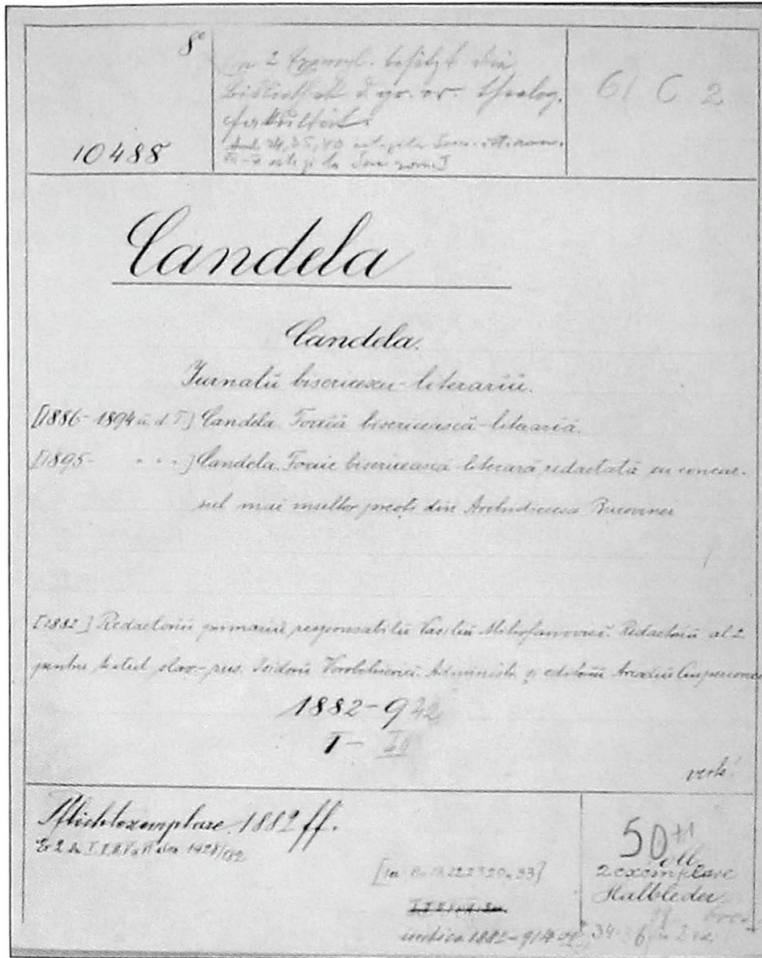 8°
10488
In 2 Exempl. besitzt die
Bibliothek d. gr. or. theolog.
Fakultät.
61 C 2
Candela
Candela.
Jurnalŭ bisericescu-literariŭ.
[1886-1894 u. d. T.] Candela. Foaiă bisericească-literariă.
[1895- . . .] Candela. Foaie bisericească-literară redactată cu concur-
sul mai multor preoți din Archidieceza Bucovinei
[1882] Redactorŭ primariŭ responsabilŭ Vasiliŭ Mitrofanovici. Redactorŭ al 2
pentru textul slav.-rus. Isidorŭ Vorobchievici. Administr. și editorŭ Arcadiŭ
1882-9
I-
verte!
Pflichtexemplare 1882 ff.
50
2 exemplare
Halbleder
indice 1882-914